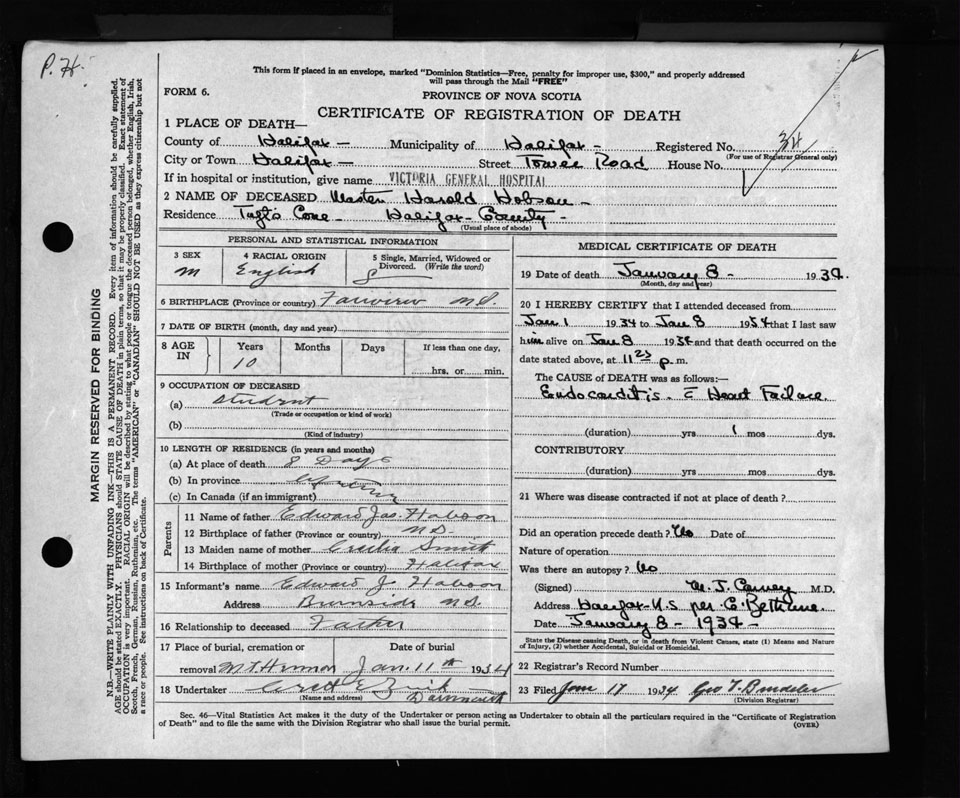 P.H.
This form if placed in an envelope, marked "Dominion Statistics—Free, penalty for improper use, $300," and properly addressed
will pass through the Mail "FREE"
FORM 6.
PROVINCE OF NOVA SCOTIA
CERTIFICATE OF REGISTRATION OF DEATH
1 PLACE OF DEATH—
County of Halifax — Municipality of Halifax — Registered No. 34
(For use of Registrar General only)
City or Town Halifax — Street Tower Road House No.
If in hospital or institution, give name VICTORIA GENERAL HOSPITAL
2 NAME OF DECEASED Master Harold Hobson —
Residence Tuft's Cove — Halifax County —
(Usual place of abode)
PERSONAL AND STATISTICAL INFORMATION
3 SEX 4 RACIAL ORIGIN 5 Single, Married, Widowed or
Divorced. (Write the word)
M English S
6 BIRTHPLACE (Province or country) Fairview N.S.
7 DATE OF BIRTH (month, day and year)
8 AGE IN Years Months Days If less than one day,
10
hrs. or min.
9 OCCUPATION OF DECEASED
(a) Student
(Trade or occupation or kind of work)
(b)
(Kind of industry)
10 LENGTH OF RESIDENCE (in years and months)
(a) At place of death 8 Days
(b) In province Lifetime
(c) In Canada (if an immigrant)
Parents
11 Name of father Edward Jas. Hobson
12 Birthplace of father (Province or country) N.S.
13 Maiden name of mother Cecilia Smith
14 Birthplace of mother (Province or country) Halifax
15 Informant's name Edward J. Hobson
Address Burnside N.S.
16 Relationship to deceased Father
17 Place of burial, cremation or Date of burial
removal Mt Hermon Jan. 11th 1934
18 Undertaker
(Name and address) Dartmouth
MEDICAL CERTIFICATE OF DEATH
19 Date of death January 8 — 1934.
(Month, day and year)
20 I HEREBY CERTIFY that I attended deceased from
Jan 1 1934 to Jan 8 1934 that I last saw
him alive on Jan 8 1934 and that death occurred on the
date stated above, at 11 25 p.m.
The CAUSE OF DEATH was as follows:—
Endocarditis. c̄ Heart Failure.
(duration) yrs 1 mos dys.
CONTRIBUTORY
(duration) yrs mos dys.
21 Where was disease contracted if not at place of death?
Did an operation precede death? No Date of
Nature of operation
Was there an autopsy? No
(Signed) J. Carney M.D.
Address Halifax N.S. per C. Bethune.
Date January 8 — 1934 —
State the Disease causing Death, or in death from Violent Causes, state (1) Means and Nature
of Injury, (2) whether Accidental, Suicidal or Homicidal.
22 Registrar's Record Number
23 Filed Jan 17 1934 Geo T.
(Division Registrar)
Sec. 46—Vital Statistics Act makes it the duty of the Undertaker or person acting as Undertaker to obtain all the particulars required in the "Certificate of Registration
of Death" and to file the same with the Division Registrar who shall issue the burial permit. (OVER)
MARGIN RESERVED FOR BINDING
N.B.—WRITE PLAINLY WITH UNFADING INK—THIS IS A PERMANENT RECORD. Every item of information should be carefully supplied.
AGE should be stated EXACTLY. PHYSICIANS should STATE CAUSE OF DEATH in plain terms, so that it may be properly classified. Exact statement of
OCCUPATION is very important. RACIAL ORIGIN will be described by stating to what people or tongue the deceased person belonged, whether English, Irish,
Scotch, French, German, Russian, Ruthenian, etc. The terms "AMERICAN" or "CANADIAN" SHOULD NOT BE USED as they express citizenship but not
a race or people. See instructions on back of Certificate.